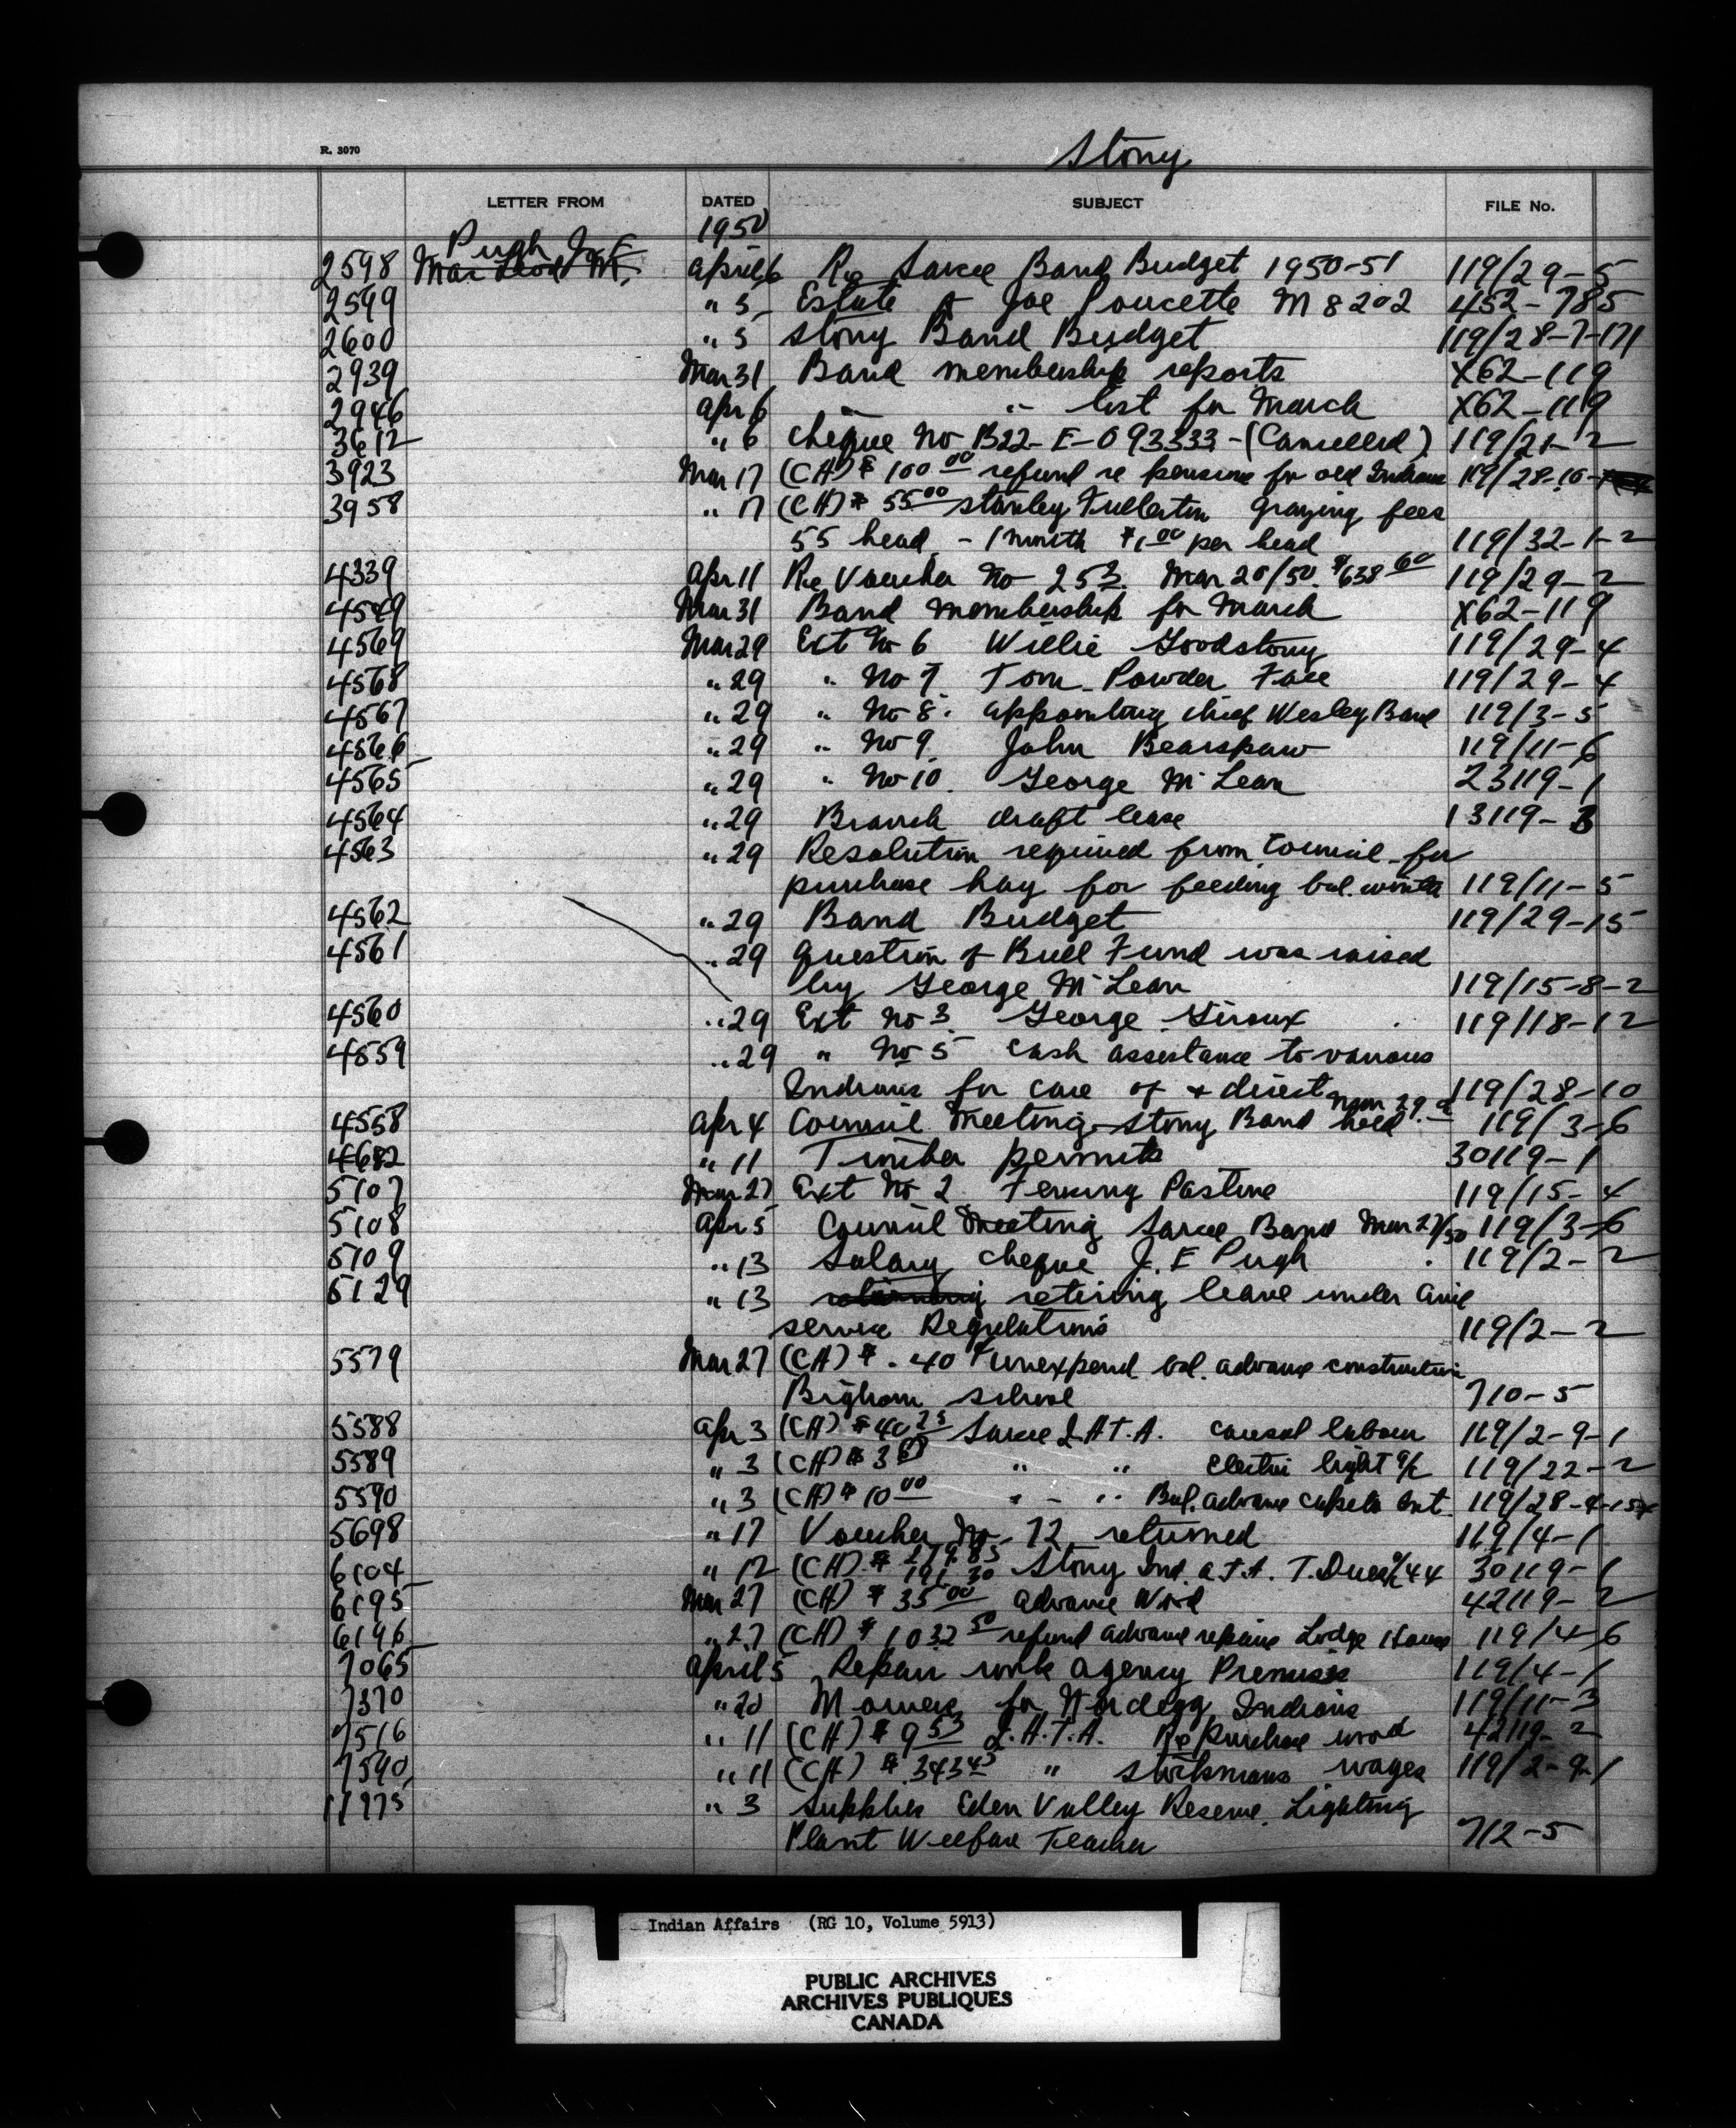 R. 3070
Stony
LETTER FROM DATED SUBJECT FILE No.
1950
Pugh J. E.
2598 MacLeod M. April 6 Re Sarcee Band Budget 1950-51 119/29-5
2599 " 5 Estate of Joe Poucette M 8202 452-785
2600 " 5 Stony Band Budget 119/28-7-171
2939 Mar 31 Band membership reports X62-119
2946 Apr 6 " " list for March X62-119
3612 " 6 Cheque No B22-E-093333-(Cancelled) 119/21-2
3923 Mar 17 (CH) $100.00 refund re pensions for old Indians 119/28-10-
3958 " 17 (CH) $55.00 Stanley Fullerton Grazing fees
55 head - 1 month $1.00 per head 119/32-1-2
4339 Apr 11 Re Voucher No 253 Mar 20/50 $638.60 119/29-2
4549 Mar 31 Band membership for March X62-119
4569 Mar 29 Ext No 6 Willie Goodstony 119/29-4
4568 " 29 " No 7 Tom Powder Face 119/29-4
4567 " 29 " No 8. appointing chief Wesley Band 119/3-5
4566 " 29 " No 9 John Bearspaw 119/11-6
4565 " 29 " No 10. George McLean 23119-1
4564 " 29 Branch draft lease 13119-3
4563 " 29 Resolution required from Council for
purchase hay for feeding bal. winter 119/11-5
4562 " 29 Band Budget 119/29-15
4561 " 29 Question of Bull Fund was raised
by George McLean 119/15-8-2
4560 " 29 Ext No 3 George Giroux 119/18-12
4559 " 29 " No 5 Cash assistance to various
Indians for care of & direct 119/28-10
Mar 29.
4558 Apr 4 Council Meeting Stony Band held 119/3-6
4682 " 11 Timber permits 30119-1
5107 Mar 27 Ext No 2 Fencing Pasture 119/15-4
5108 Apr 5 Council Meeting Sarcee Band Mar 27/50 119/3-6
5109 " 13 Salary Cheque J. E Pugh 119/2-2
5129 " 13 retiring leave under Civil
service Regulations 119/2-2
5579 Mar 27 (CH) $.40 unexpend bal. advance construction
Bighorn School 710-5
5588 Apr 3 (CH) $40.25 Sarcee I.A.T.A. Casual labour 119/2-9-1
5589 " 3 (CH) $3 " " Electric light a/c 119/22-2
5590 " 3 (CH) $10.00 " " Bal. advance 119/28-4-
5698 " 17 Voucher No 72 returned 119/4-1
6104 " 12 (CH) $ 279.85 191.30 Stony Ind. A.T.A. T. Dues 30119-1
6195 Mar 27 (CH) $35.00 advance Wood 42119-2
6196 " 27 (CH) $1032.50 refund advance repairs Lodge House 119/4-6
7065 April 5 Repair work agency Premises 119/4-1
7370 " 20 Mowers for Nordegg Indians 119/11-3
7516 " 11 (CH) $9.53 I.A.T.A. Re Purchase wood 42119-2
7590 " 11 (CH) $343.45 " Stockmans wages 119/2-9-1
11975 " 3 Supplies Eden Valley Reserve. Lighting
Plant Welfare Teacher 712-5
Indian Affairs (RG 10, Volume 5913)
PUBLIC ARCHIVES
ARCHIVES PUBLIQUES
CANADA